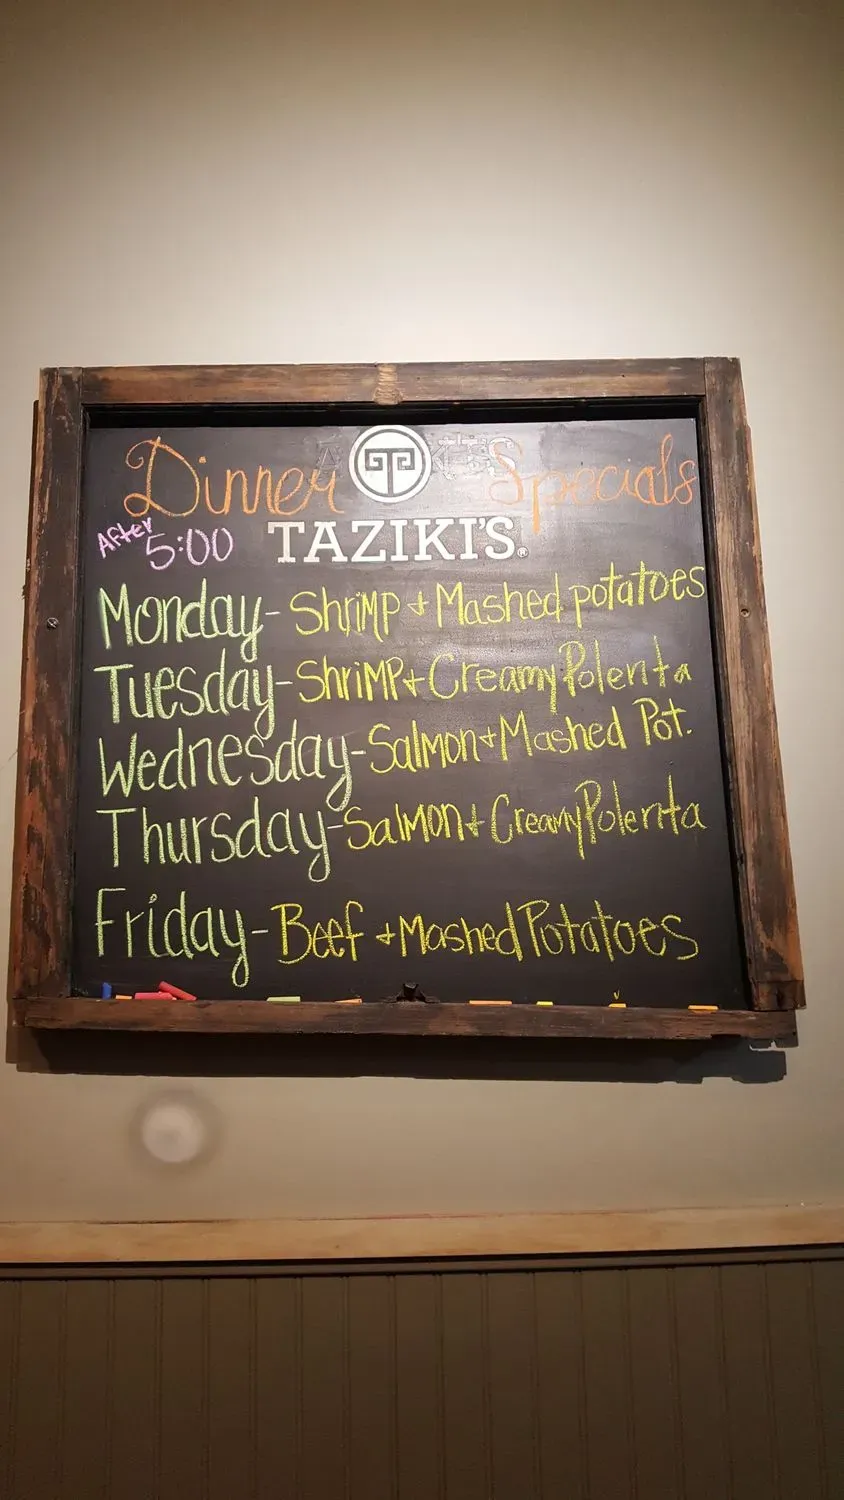 Dinner Specials
After
5:00 TAZIKI'S®
Monday- Shrimp + Mashed potatoes
Tuesday- Shrimp + Creamy Polenta
Wednesday- Salmon + Mashed Pot.
Thursday- Salmon + Creamy Polenta
Friday- Beef + Mashed Potatoes